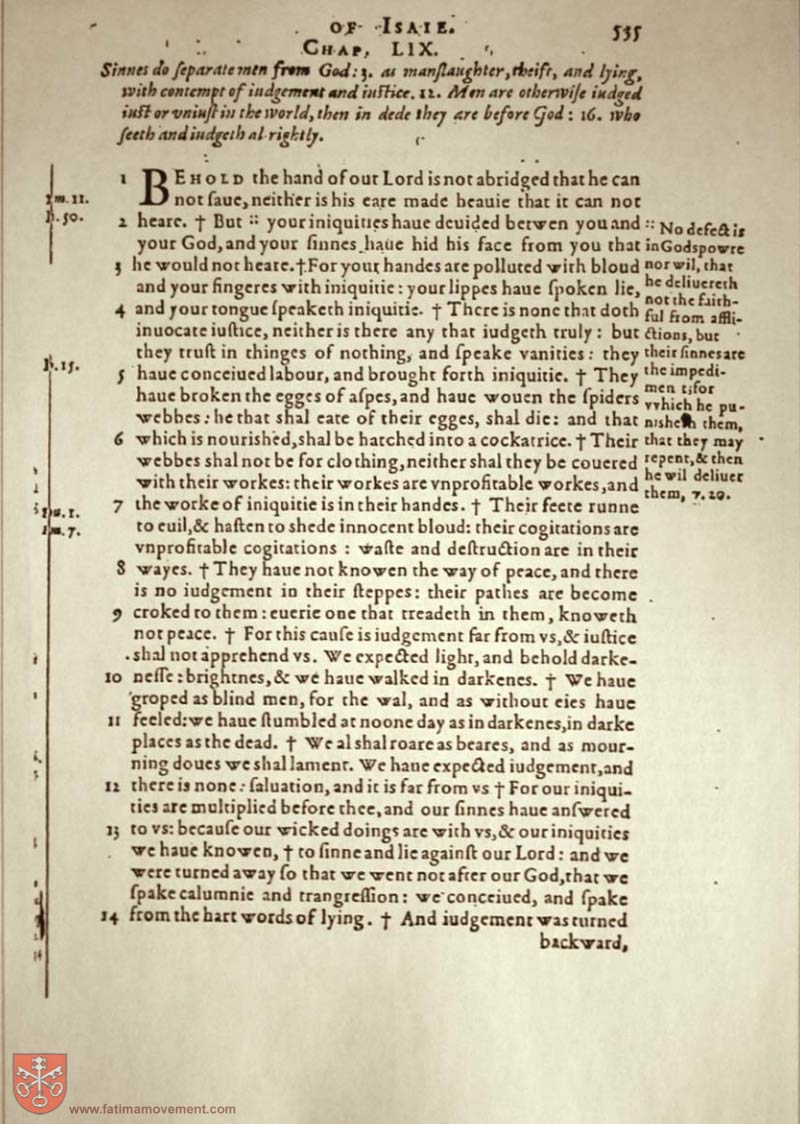 OF ISAIE. 535
CHAP. LIX.
Sinnes do ſeparate men from God: 3. as manſlaughter, theift, and lying,
with contempt of iudgement and iuſtice. 12. Men are otherwiſe iudged
iuſt or vniuſt in the world, then in dede they are before God: 16. who
ſeeth and iudgeth al rightly.
1 BEHOLD the hand of our Lord is not abridged that he can
not ſaue, neither is his eare made heauie that it can not
2 heare. † But :: your iniquities haue deuided betwen you and
your God, and your ſinnes haue hid his face from you that
3 he would not heare. † For your handes are polluted with bloud
and your fingeres with iniquitie: your lippes haue ſpoken lie,
4 and your tongue ſpeaketh iniquitie. † There is none that doth
inuocate iuſtice, neither is there any that iudgeth truly: but
they truſt in thinges of nothing, and ſpeake vanities: they
5 haue conceiued labour, and brought forth iniquitie. † They
haue broken the egges of aſpes, and haue wouen the ſpiders
webbes: he that shal eate of their egges, shal die: and that
6 which is nourished, shal be hatched into a cockatrice. † Their
webbes shal not be for clothing, neither shal they be couered
with their workes: their workes are vnprofitable workes, and
7 the worke of iniquitie is in their handes. † Their feete runne
to euil, & haſten to shede innocent bloud: their cogitations are
vnprofitable cogitations: waſte and deſtruction are in their
8 wayes. † They haue not knowen the way of peace, and there
is no iudgement in their ſteppes: their pathes are become
9 croked to them: euerie one that treadeth in them, knoweth
not peace. † For this cauſe is iudgement far from vs, & iuſtice
shal not apprehend vs. We expected light, and behold darke-
neſſe: brightnes, & we haue walked in darkenes. † We haue
10 groped as blind men, for the wal, and as without eies haue
11 feeled: we haue ſtumbled at noone day as in darkenes, in darke
places as the dead. † We al shal roare as beares, and as mour-
ning doues we shal lament. We haue expected iudgement, and
12 there is none: ſaluation, and it is far from vs † For our iniqui-
ties are multiplied before thee, and our ſinnes haue anſwered
13 to vs: becauſe our wicked doings are with vs, & our iniquities
we haue knowen, † to ſinne and lie againſt our Lord: and we
were turned away ſo that we went not after our God, that we
ſpake calumnie and trangreſſion: we conceiued, and ſpake
14 from the hart words of lying. † And iudgement was turned
backward,
:: No defect is
in Gods powre
nor wil, that
he deliuereth
not the faith-
ful from affli-
ctions, but
their ſinnes are
the impedi-
ment; for
which he pu-
nisheth them,
that they may
repent, & then
he wil deliuer
them, v. 20.
11.
50.
15.
1.
7.
www.fatimamovement.com